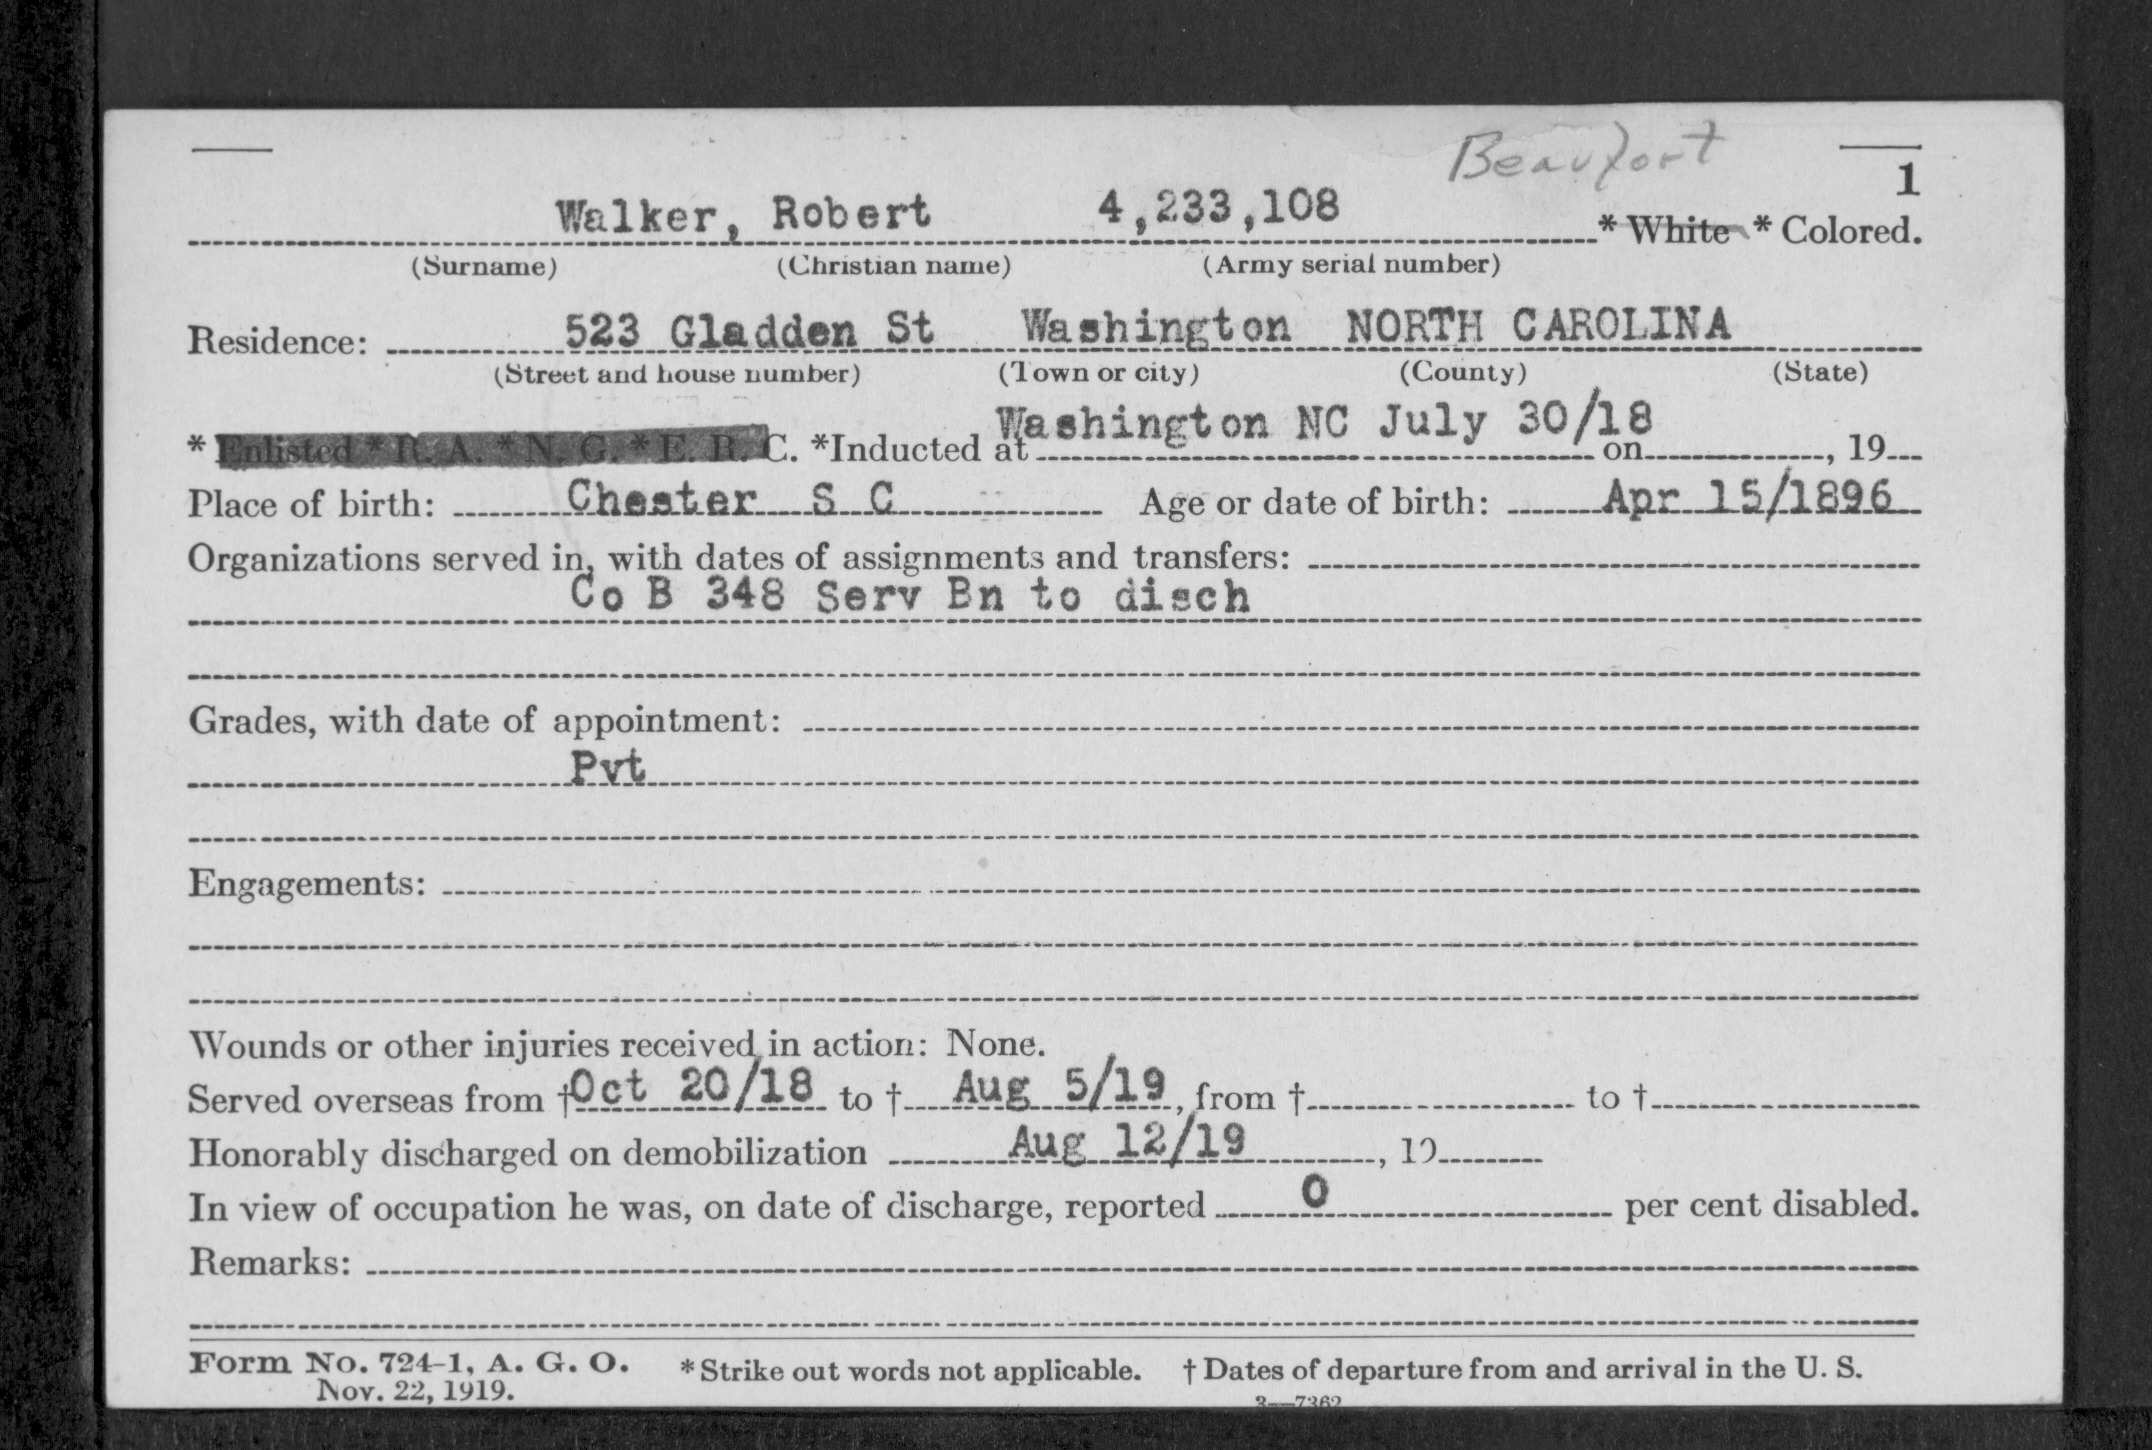 Beaufort
1
Walker, Robert 4,233,108 * White * Colored.
(Surname) (Christian name) (Army serial number)
Residence: 523 Gladden St Washington NORTH CAROLINA
(Street and house number) (Town or city) (County) (State)
* Enlisted * R. A. * N. G. * E. R. C. *Inducted at Washington NC July 30/18 on , 19
Place of birth: Chester S C Age or date of birth: Apr 15/1896
Organizations served in, with dates of assignments and transfers:
Co B 348 Serv Bn to disch
Grades, with date of appointment:
Pvt
Engagements:
Wounds or other injuries received in action: None.
Served overseas from † Oct 20/18 to † Aug 5/19, from † to †
Honorably discharged on demobilization Aug 12/19 , 19
In view of occupation he was, on date of discharge, reported 0 per cent disabled.
Remarks:
Form No. 724-1, A. G. O. * Strike out words not applicable. † Dates of departure from and arrival in the U. S.
Nov. 22, 1919. 3—7362